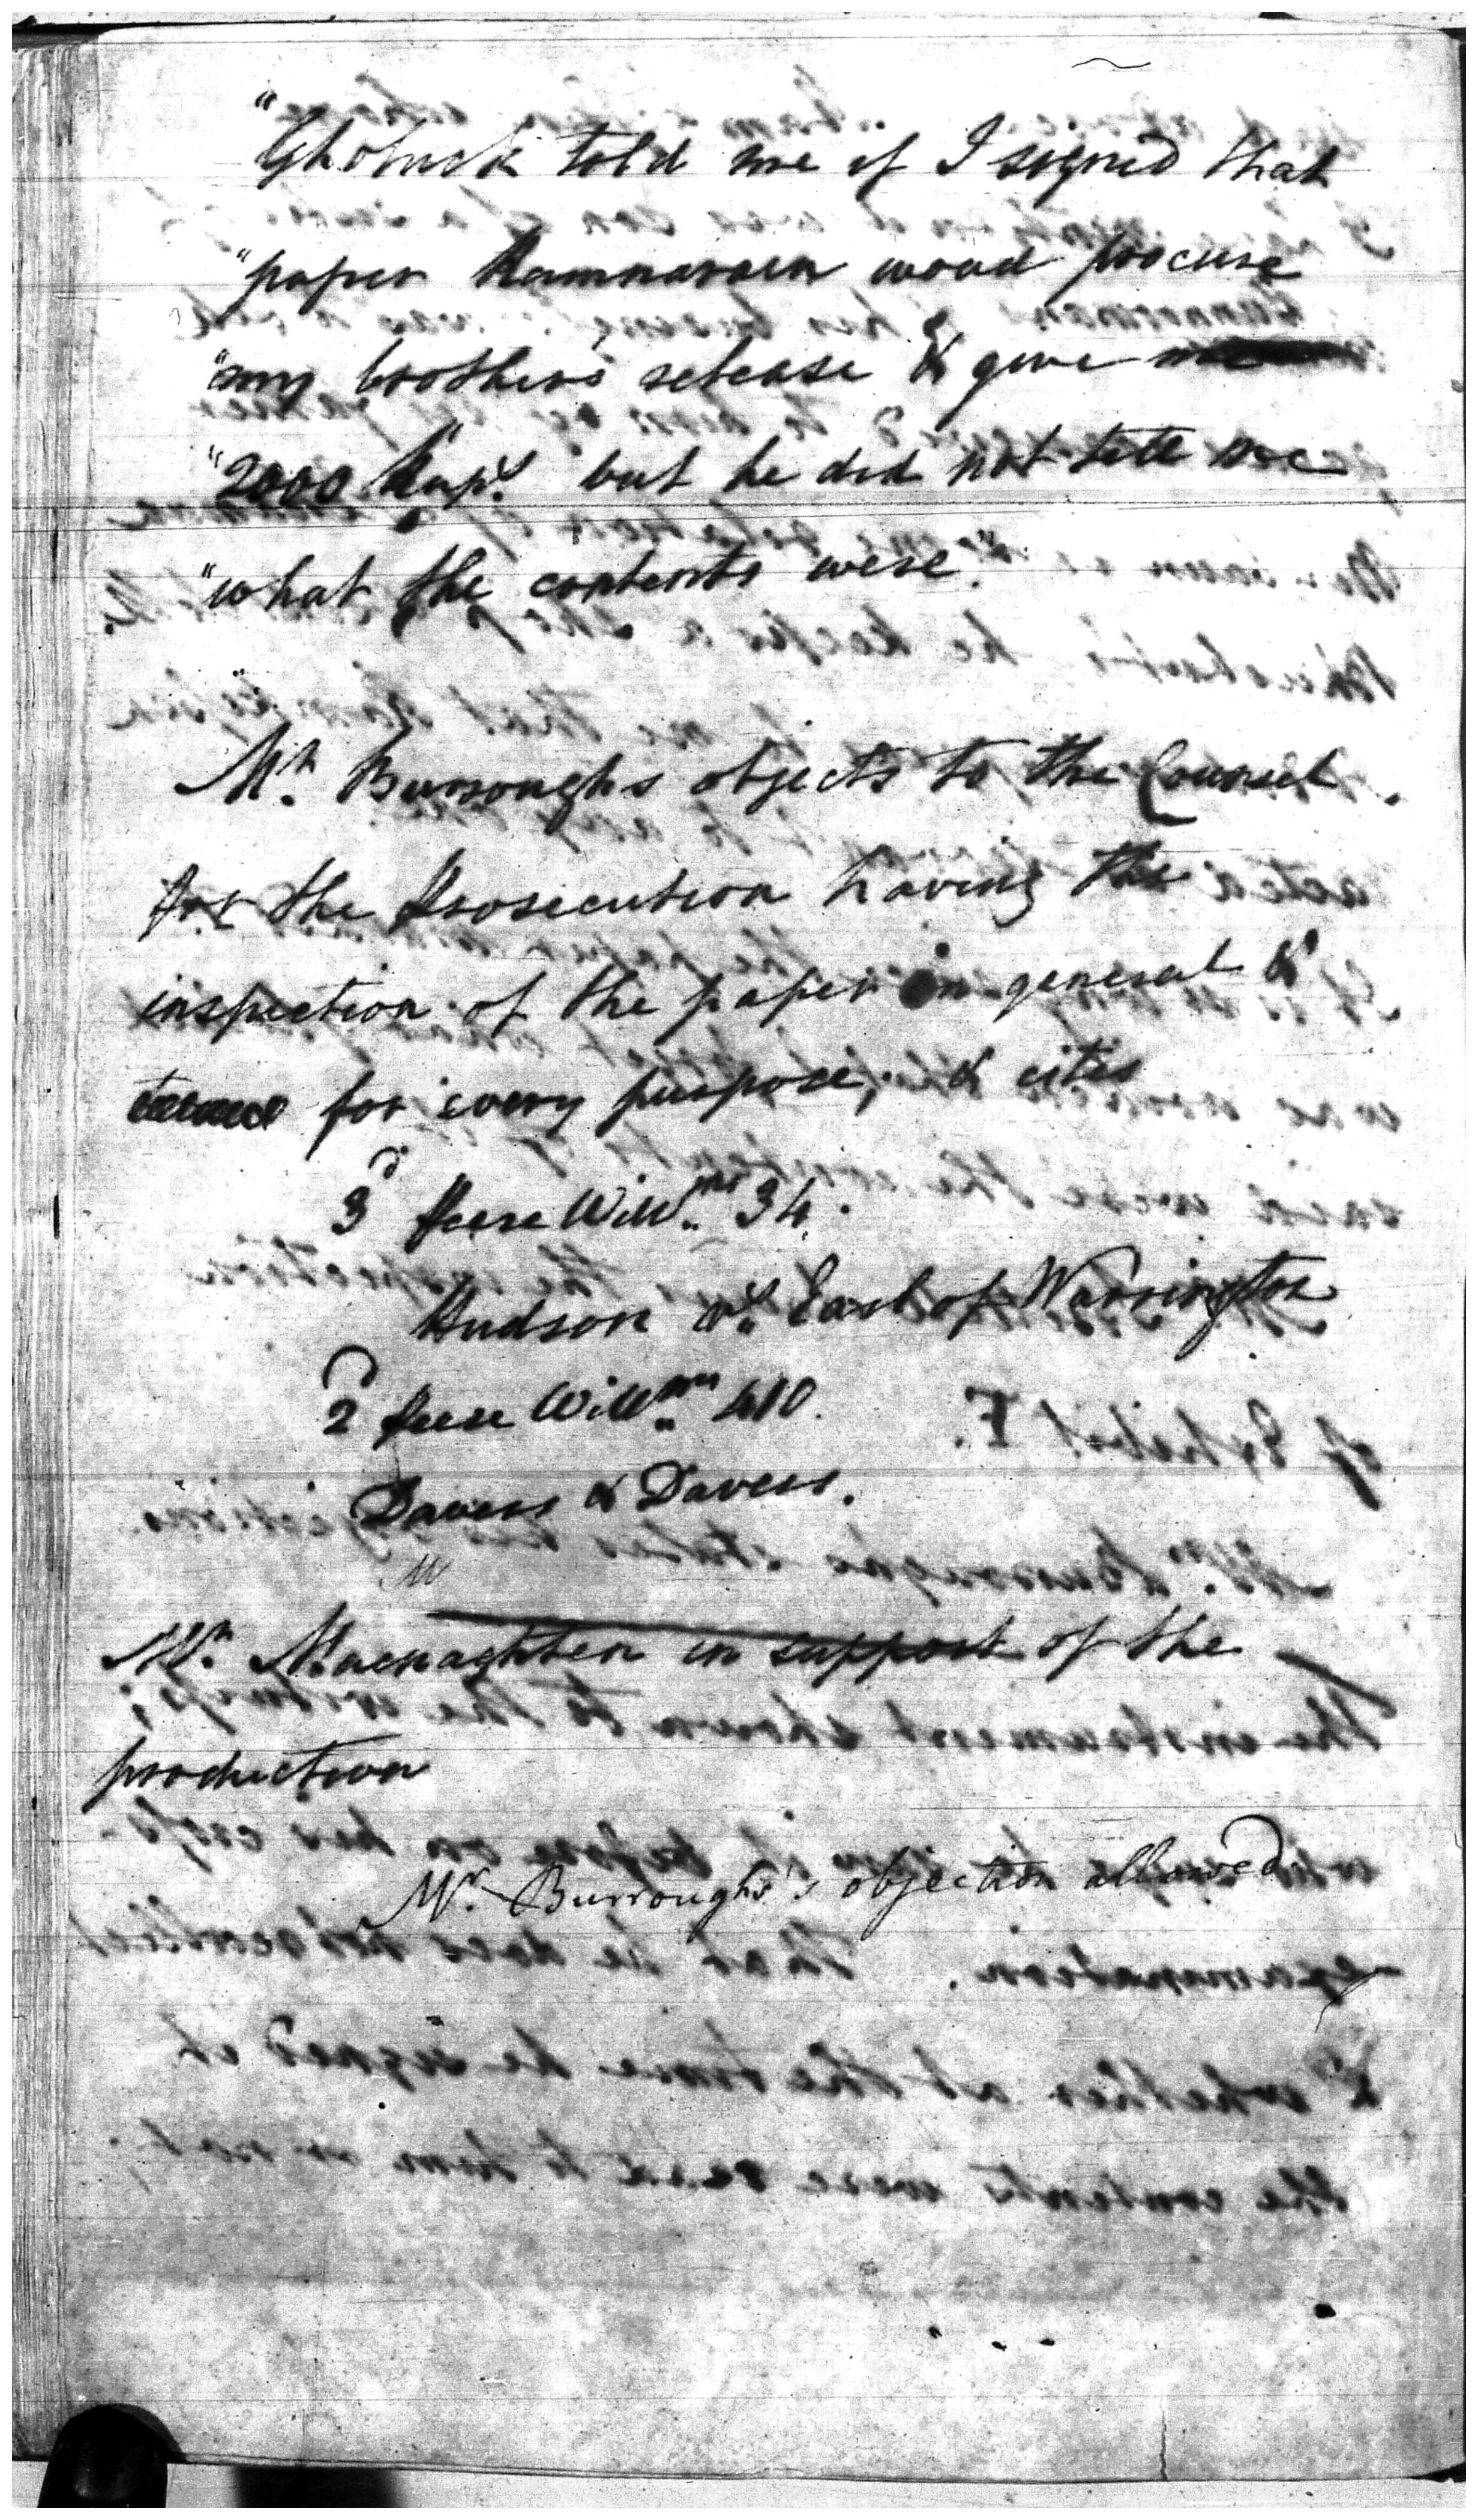 "Ghotuck told me if I signed that
"paper Ramnarain woud procure
"my brothers release & give me
"2000 Rup.s but he did not tell me
"what the contents were.
Mr. Burroughs objects to the Counsel
for the Prosecution having the
inspection of the paper in general &
for every purpose; & cites
3d Peere Willms 34.
Hudson vs. Earl of Warrington
2d Peere Willms 410.
Davers & Davers.
Mr. Macnaghten in support of the
production
Mr. Burroughs's objection allowed.